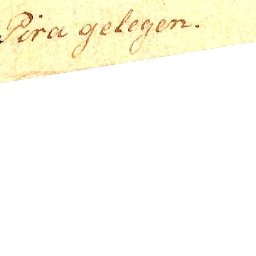 Pira gelegen.